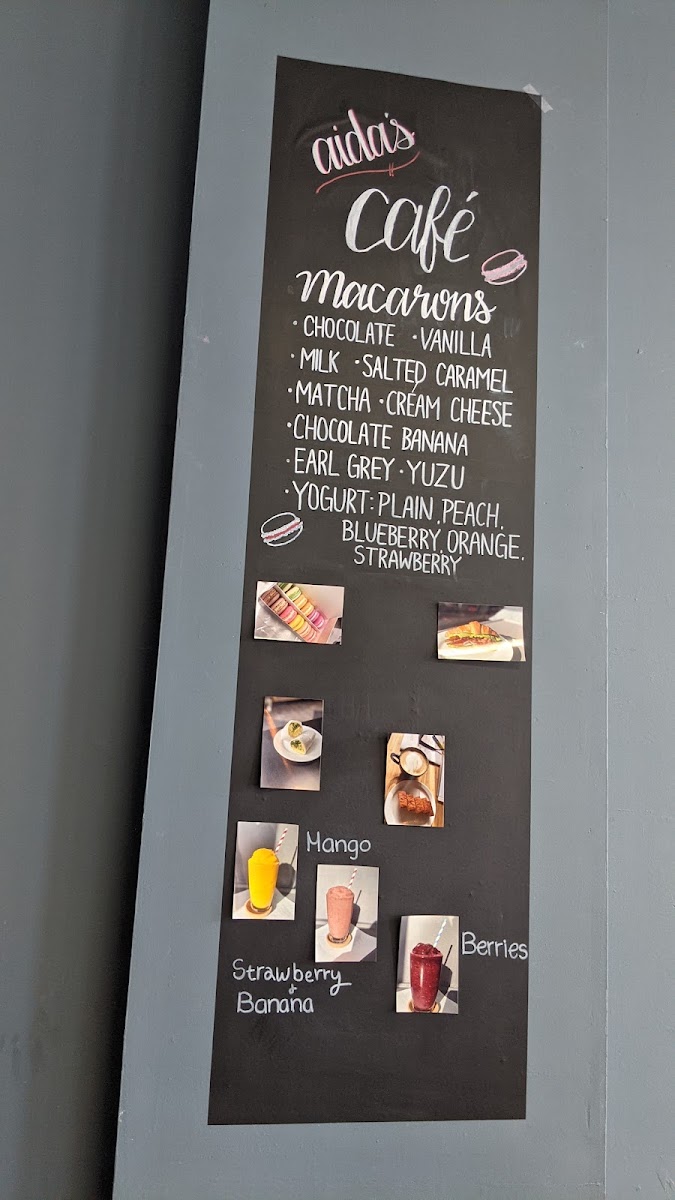 aida's
Café
Macarons
· CHOCOLATE · VANILLA
· MILK · SALTED CARAMEL
· MATCHA · CREAM CHEESE
· CHOCOLATE BANANA
· EARL GREY · YUZU
· YOGURT: PLAIN, PEACH,
BLUEBERRY, ORANGE,
STRAWBERRY
Mango
Berries
Strawberry
&
Banana